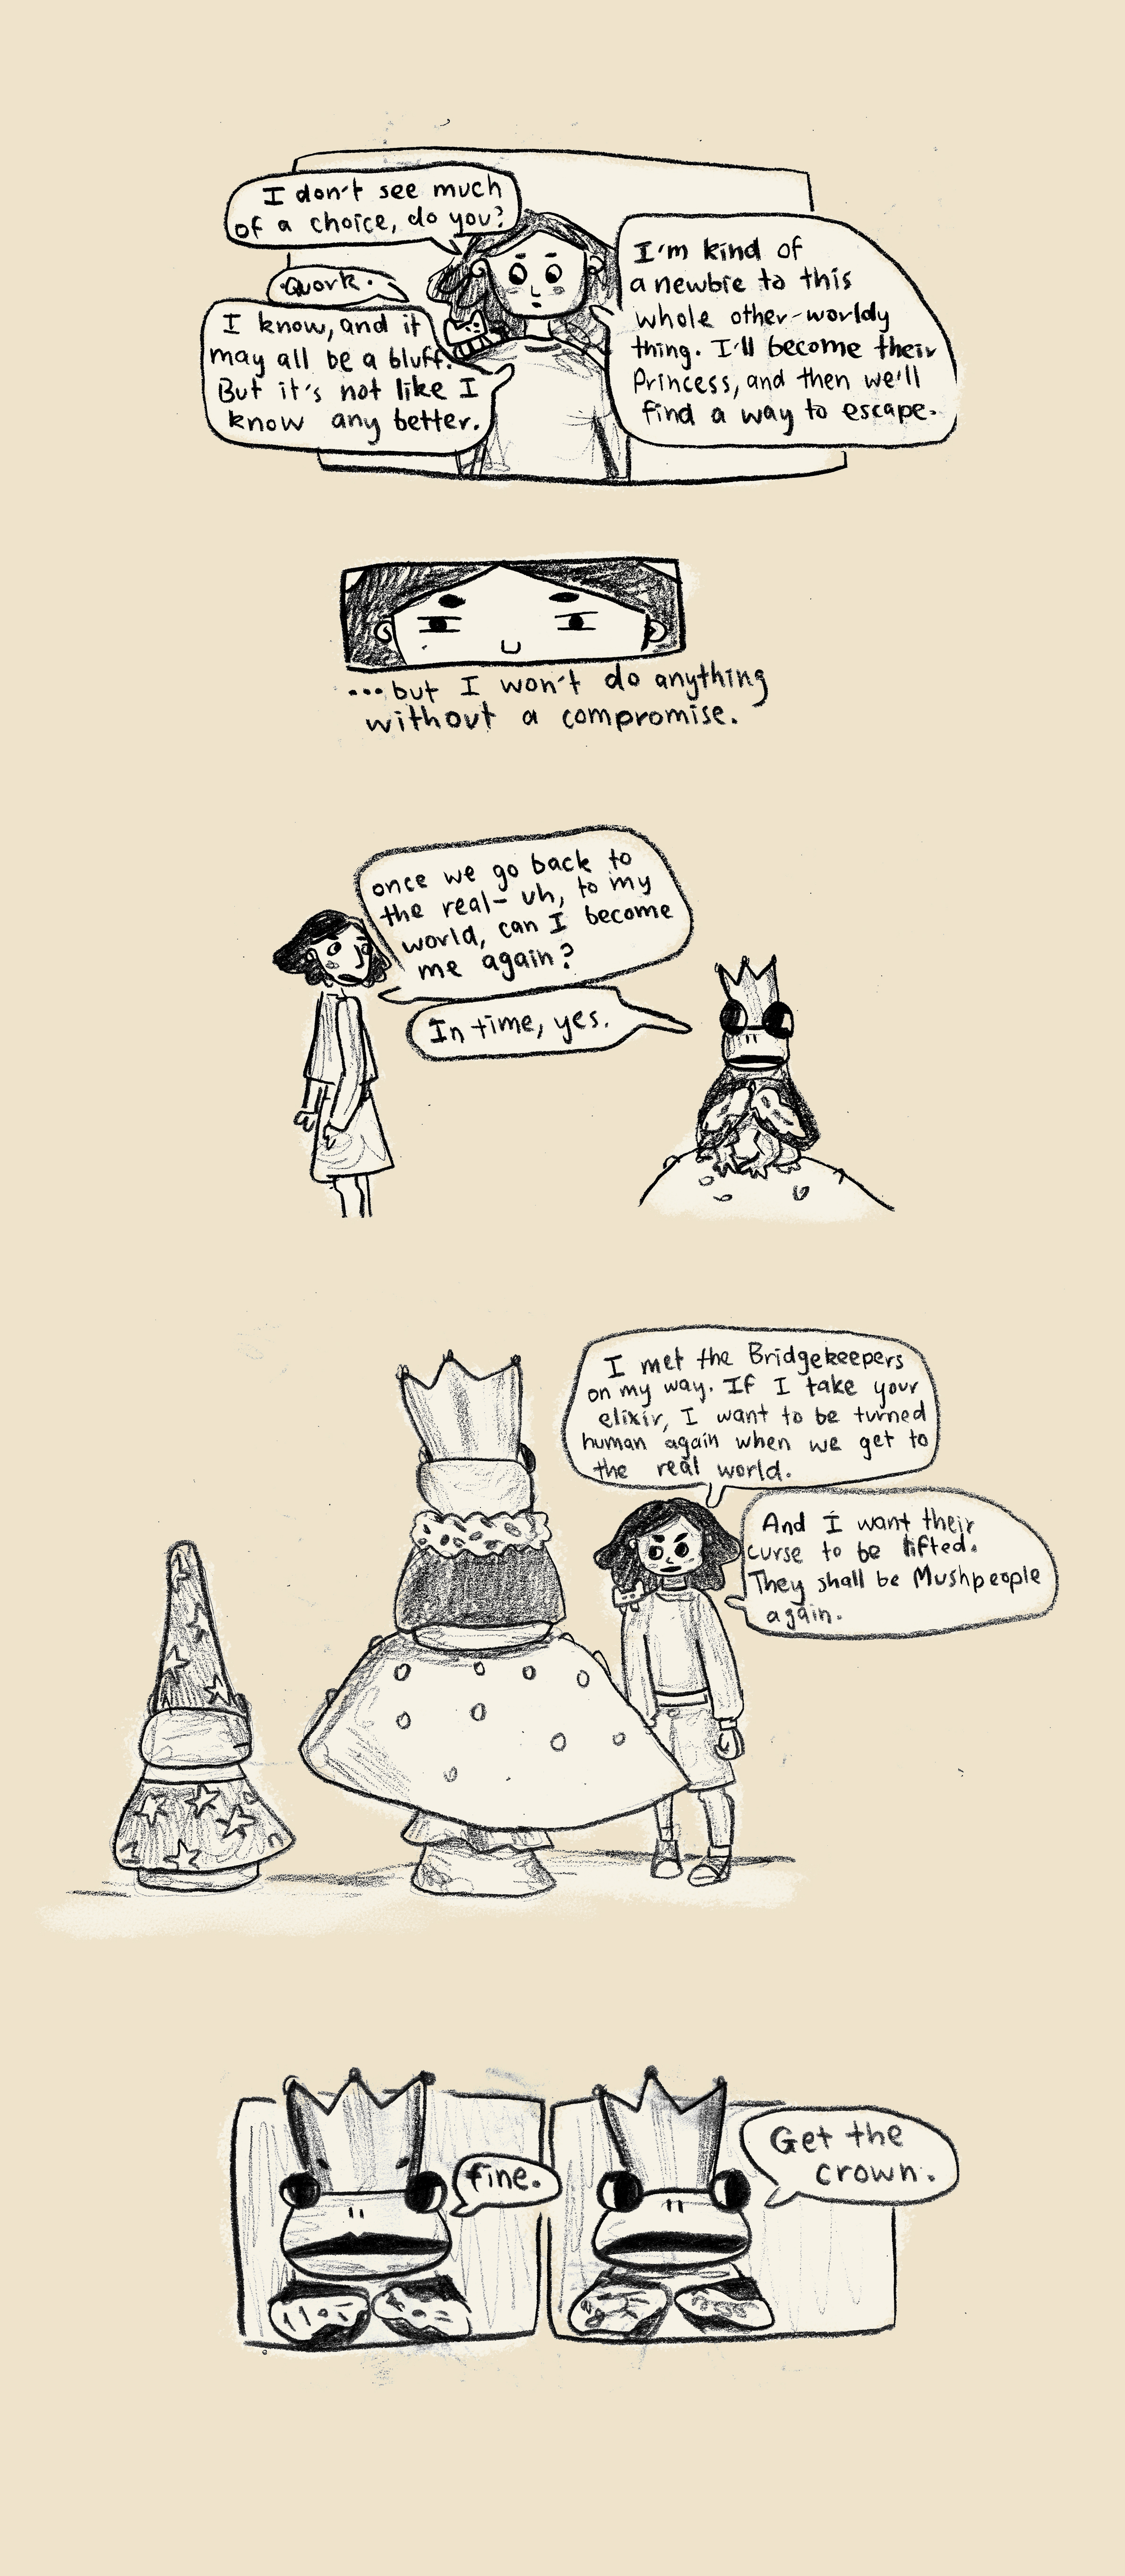 I don't see much
of a choice, do you?
Quork.
I know, and it
may all be a bluff.
But it's not like I
know any better.
I'm kind of
a newbie to this
whole other-worldy
thing. I'll become their
Princess, and then we'll
find a way to escape.
...but I won't do anything
without a compromise.
once we go back to
the real- uh, to my
world, can I become
me again?
In time, yes.
I met the Bridgekeepers
on my way. If I take your
elixir, I want to be turned
human again when we get to
the real world.
And I want their
curse to be lifted.
They shall be Mushpeople
again.
fine.
Get the
crown.